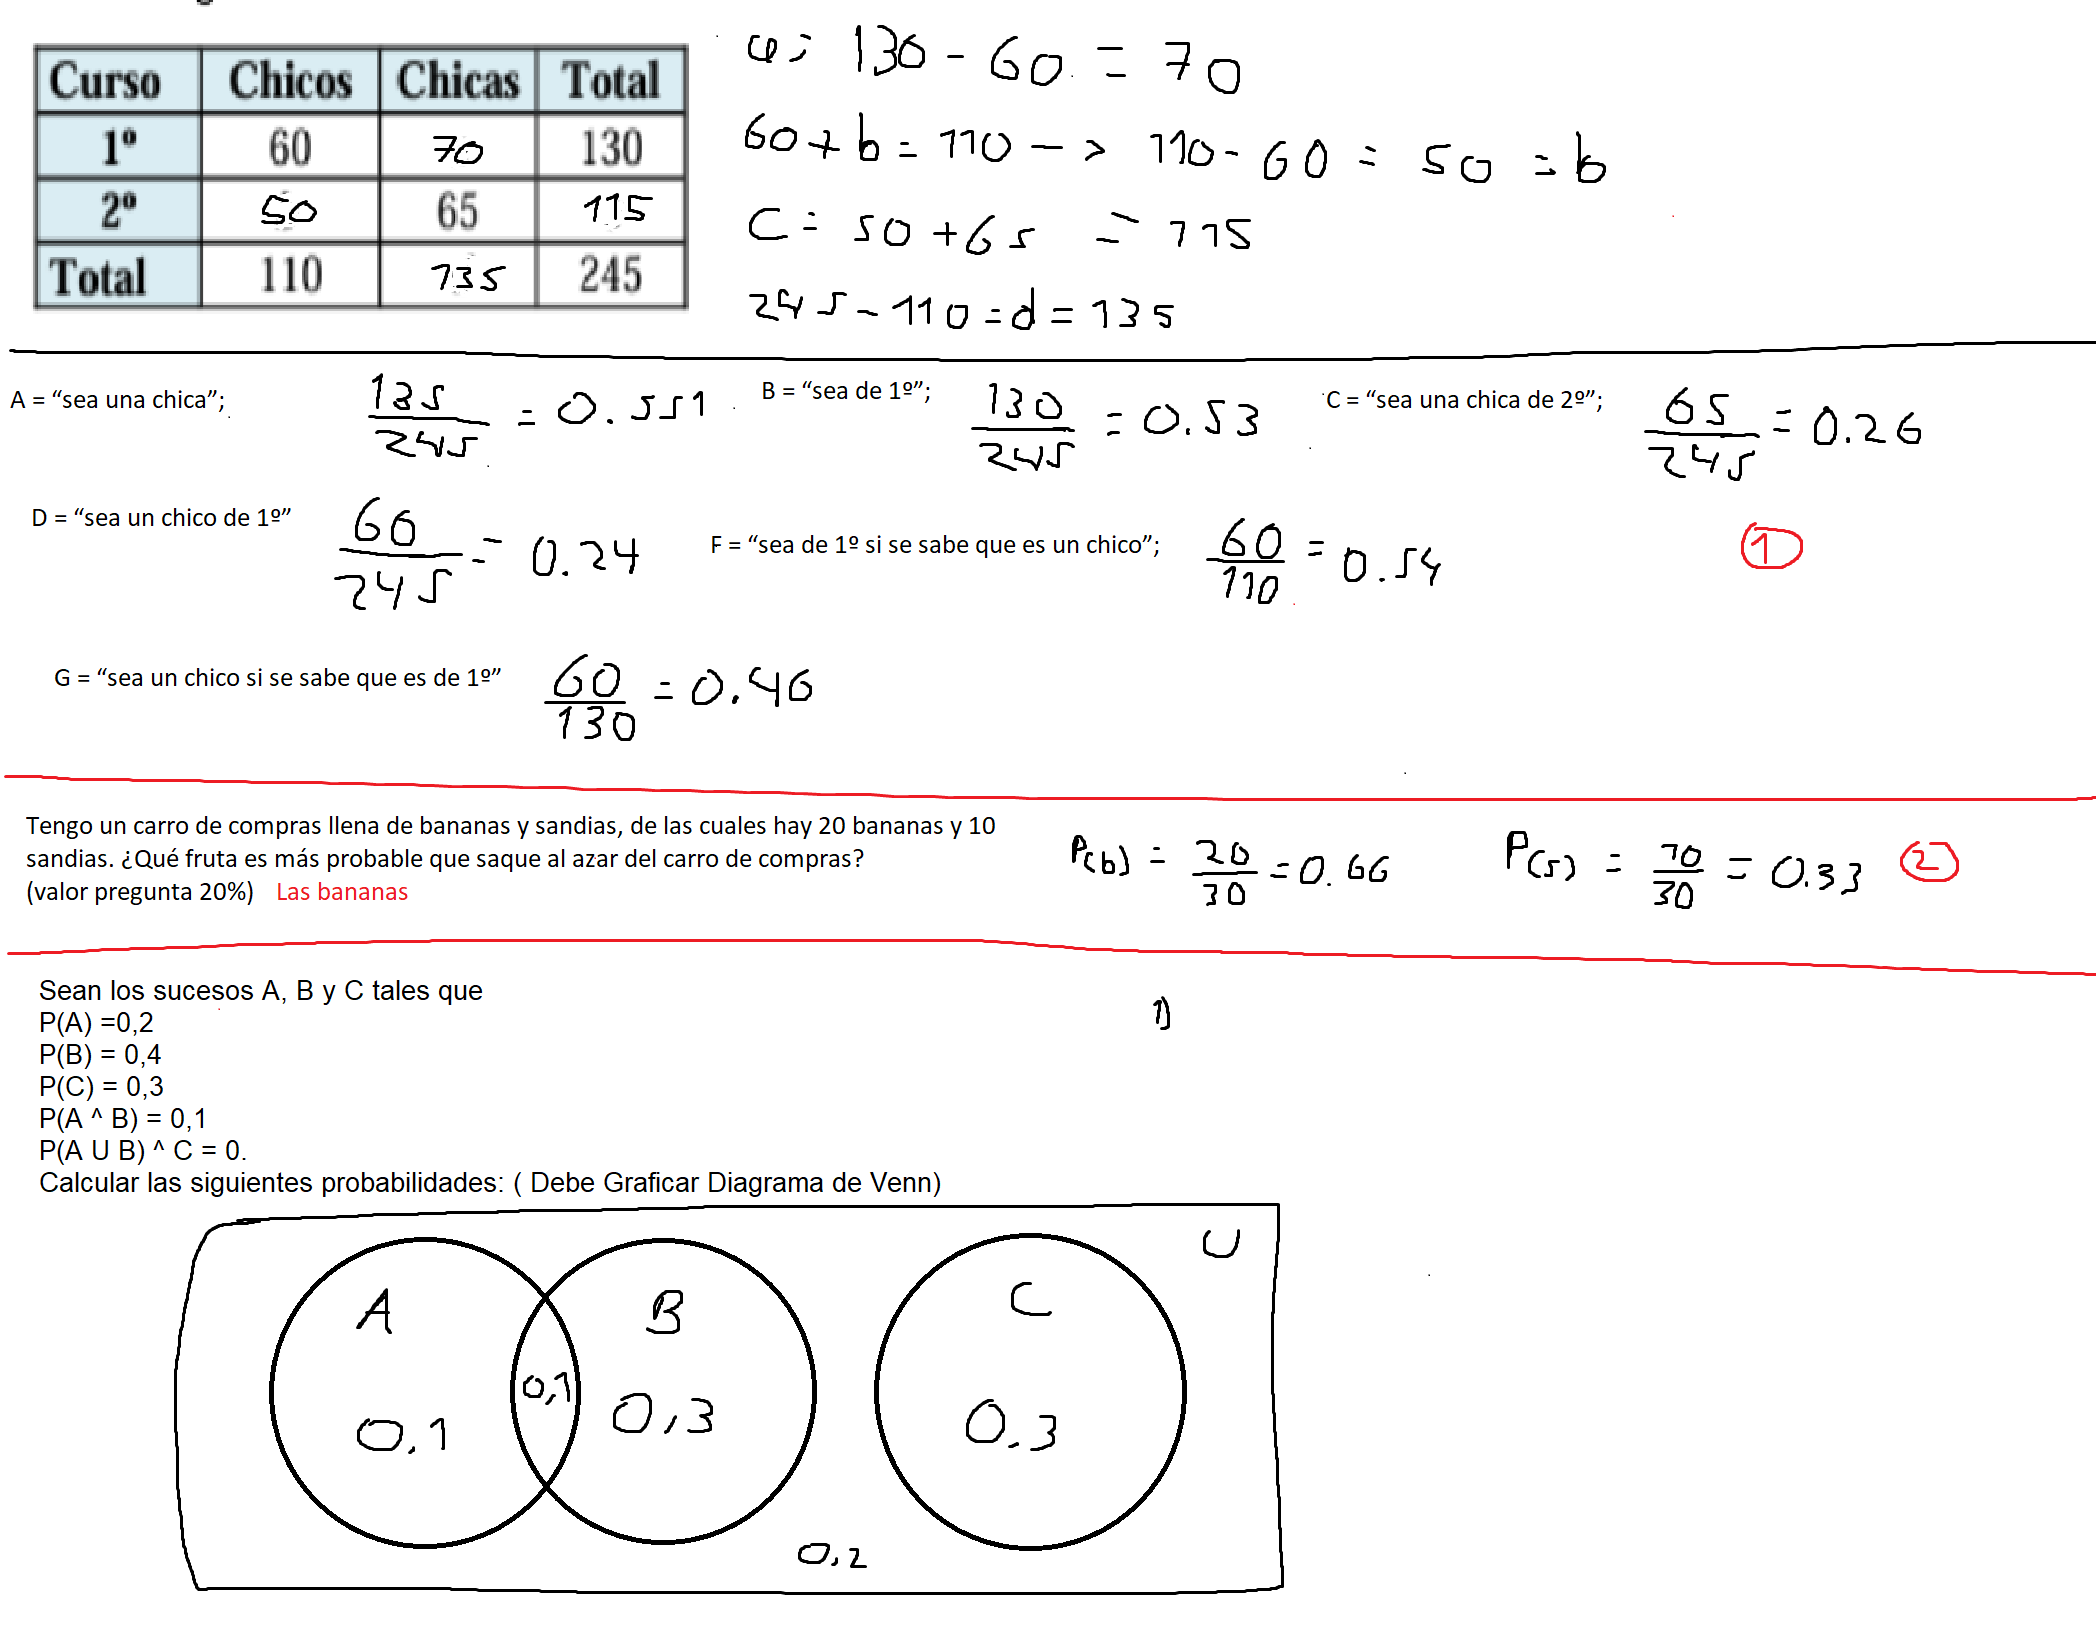 Curso Chicos Chicas Total
1º 60 70 130
2º 50 65 115
Total 110 135 245
a: 130 - 60 = 70
60 + b = 110 -> 110 - 60 = 50 = b
C = 50 + 65 = 115
245 - 110 = d = 135
A = “sea una chica”; 135/245 = 0.551
B = “sea de 1º”; 130/245 = 0.53
C = “sea una chica de 2º”; 65/245 = 0.26
D = “sea un chico de 1º” 60/245 = 0.24
F = “sea de 1º si se sabe que es un chico”; 60/110 = 0.54
1
G = “sea un chico si se sabe que es de 1º” 60/130 = 0.46
Tengo un carro de compras llena de bananas y sandias, de las cuales hay 20 bananas y 10
sandias. ¿Qué fruta es más probable que saque al azar del carro de compras?
(valor pregunta 20%) Las bananas
P(b) = 20/30 = 0.66
P(s) = 10/30 = 0.33
2
Sean los sucesos A, B y C tales que
P(A) =0,2
P(B) = 0,4
P(C) = 0,3
P(A ^ B) = 0,1
P(A U B) ^ C = 0.
Calcular las siguientes probabilidades: ( Debe Graficar Diagrama de Venn)
1)
U
A B C
0,1 0,1 0,3 0.3
0,2